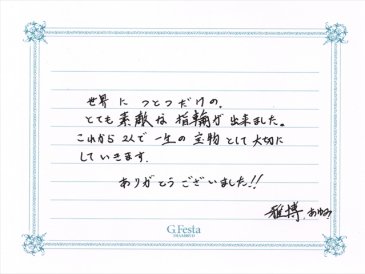 世界に一つだけの、
とても素敵な指輪が出来ました。
これから2人で一生の宝物として大切に
していきます。
ありがとうございました!!
雅博、あゆみ
G.Festa